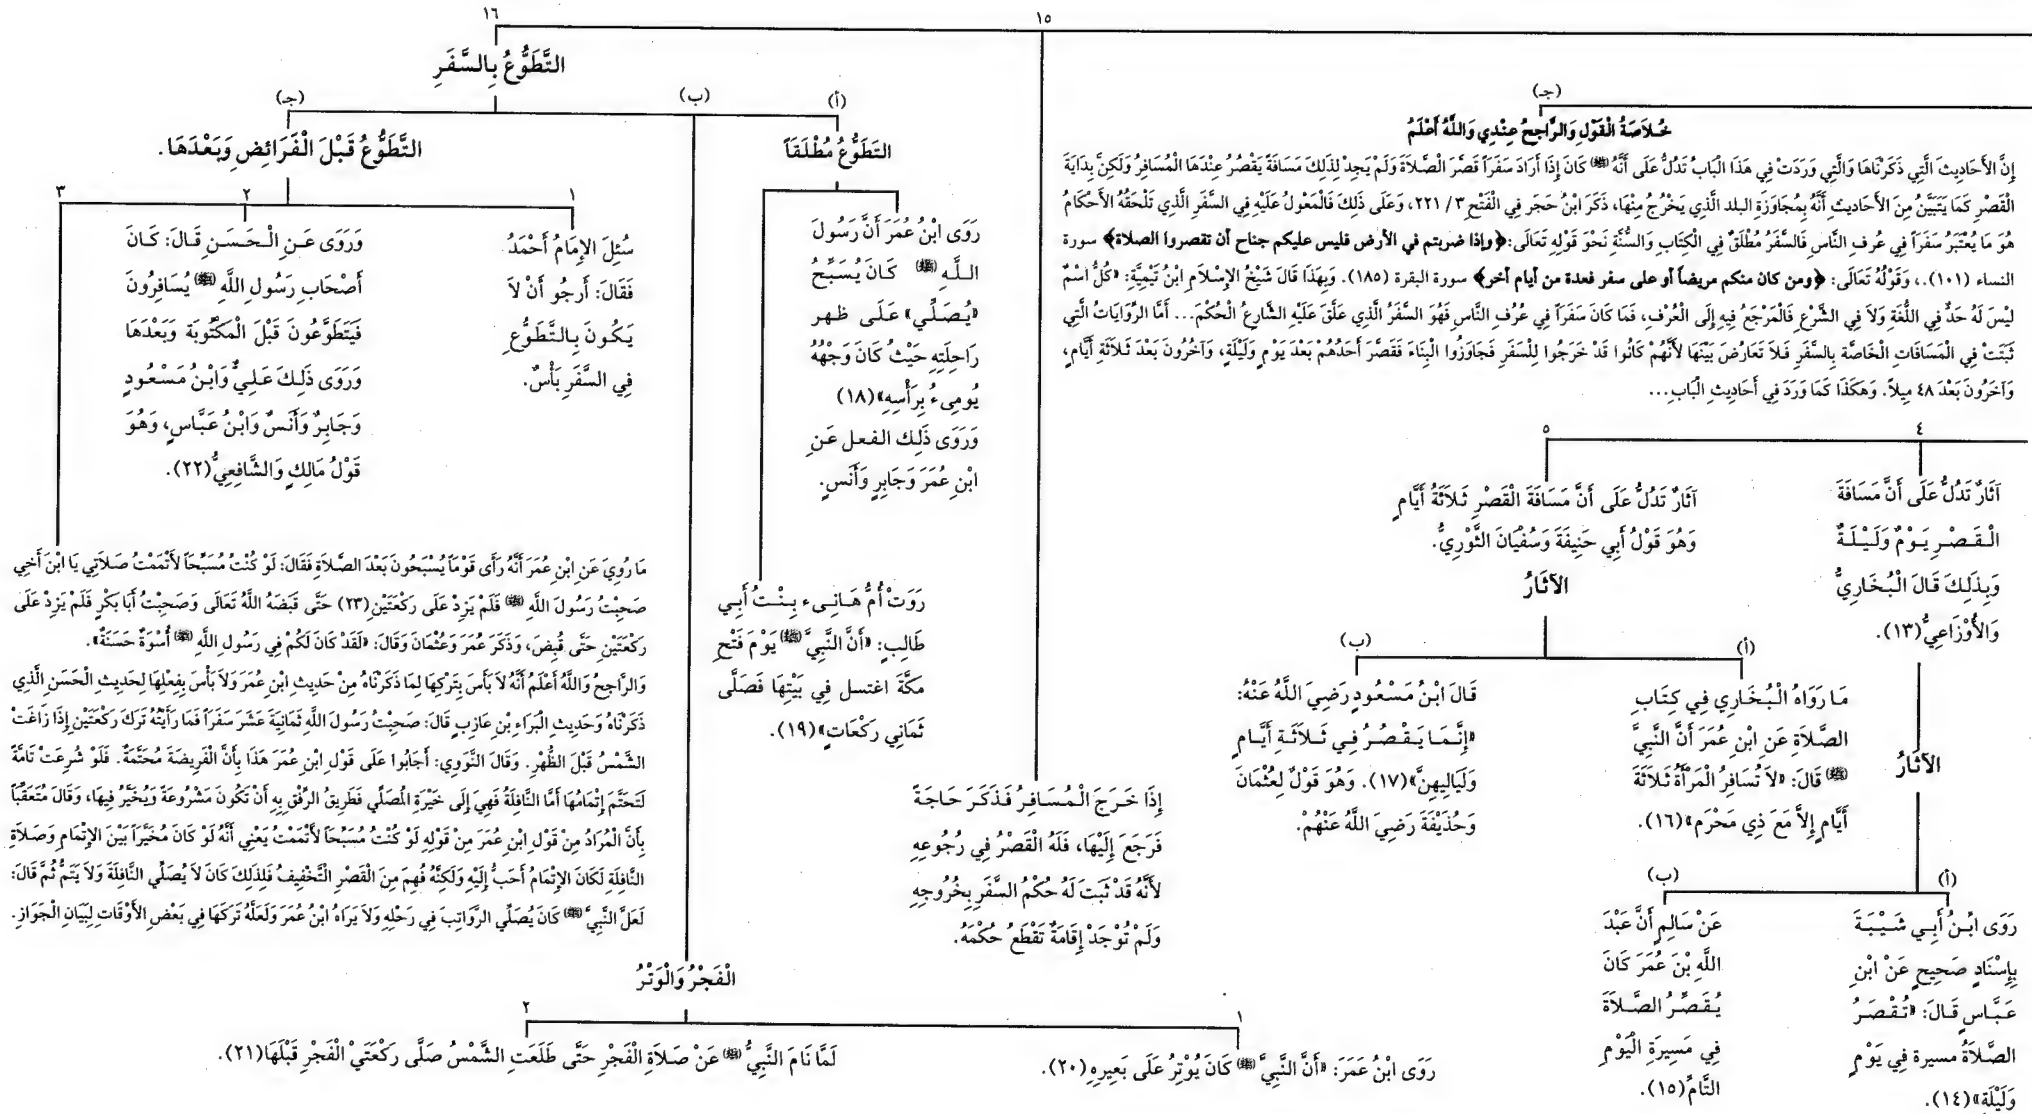 ١٥
(جـ)
خُلاَصَةُ الْقَوْلِ وَالرَّاجِحُ عِنْدِي وَاللَّهُ أَعْلَمُ
إِنَّ الأَحَادِيثَ الَّتِي ذَكَرْنَاهَا وَالَّتِي وَرَدَتْ فِي هَذَا الْبَابِ تَدُلُّ عَلَى أَنَّهُ ﷺ كَانَ إِذَا أَرَادَ سَفَرَاً قَصَّرَ الصَّلاَةَ وَلَمْ يَجِدْ لِذَلِكَ مَسَافَةً يَقْصُرُ عِنْدَهَا الْمُسَافِرُ وَلَكِنَّ بِدَايَةَ
الْقَصْرِ كَمَا يَتَبَيَّنُ مِنَ الأَحَادِيثِ أَنَّهُ بِمُجَاوَزَةِ البلد الَّذِي يَخْرُجُ مِنْهَا، ذَكَرَ ابْنُ حَجَر فِي الْفَتْحِ ٣/ ٢٢١، وَعَلَى ذَلِكَ فَالْمَعْوِلُ عَلَيْهِ فِي السَّفَرِ الَّذِي تَلْحَقُهُ الأَحْكَامُ
هُوَ مَا يُعْتَبَرُ سَفَرَاً فِي عُرفِ النَّاسِ فَالسَّفَرُ مُطْلَقٌ فِي الْكِتَابِ وَالسُّنَّةِ نَحْوَ قَوْلِهِ تَعَالَى: ﴿وإذا ضربتم في الأرض فليس عليكم جناح أن تقصروا الصلاة﴾ سورة
النساء (١٠١).، وَقَوْلُهُ تَعَالَى: ﴿ومن كان منكم مريضاً أو على سفر فعدة من أيام أخر﴾ سورة البقرة (١٨٥). وَبِهَذَا قَالَ شَيْخُ الإِسْلَامِ ابْنُ تَيْمِيَّةَ: «كُلُّ اسْمٌ
لَيْسَ لَهُ حَدٌّ فِي اللُّغَةِ وَلاَ فِي الشَّرْعِ فَالْمَرْجَعُ فِيهِ إِلَى الْعُرْفِ، فَمَا كَانَ سَفَرَاً فِي عُرُفِ النَّاسِ فَهُوَ السَّفَرُ الَّذِي عَلَّقَ عَلَيْهِ الشَّارِعُ الْحُكْمَ... أَمَّا الرِّوَايَاتُ الَّتِي
ثَبَتَتْ فِي الْمَسَافَاتِ الْخَاصَّةِ بِالسَّفَرِ فَلاَ تَعَارُضَ بَيْنَهَا لأَنَّهُمْ كَانُوا قَدْ خَرَجُوا لِلْسَفَرِ فَجَاوَزُوا الْبِنَاءَ فَقَصَّرَ أَحَدُهُمْ بَعْدَ يَوْمٍ وَلَيْلَةٍ، وَآخَرُونَ بَعْدَ ثَلاَثَةِ أَيَّامٍ،
وَآخَرُونَ بَعْدَ ٤٨ مِيلاً. وَهَكَذَا كَمَا وَرَدَ فِي أَحَادِيثِ الْبَابِ...
٤
آثَارٌ تَدُلُّ عَلَى أَنَّ مَسَافَةَ
الْقَصْرِ يَوْمٌ وَلَيْلَةٌ
وَبِذَلِكَ قَالَ الْبُخَارِيُّ
وَالأَوْزَاعِيُّ(١٣).
الآثَارُ
(أ)
رَوَى ابْنُ أَبِي شَيْبَةَ
بِإِسْنَادٍ صَحِيحٍ عَنْ ابْنِ
عَبَّاسٍ قَالَ: «تُقْصَرُ
الصَّلاَةُ مسيرة فِي يَوْمٍ
وَلَيْلَةٍ»(١٤).
(ب)
عَنْ سَالِمٍ أَنَّ عَبْدَ
اللَّهِ بْنَ عُمَرَ كَانَ
يُقَصِّرُ الصَّلاَةَ
فِي مَسِيرَةِ الْيَوْمِ
التَّامِّ(١٥).
٥
آثَارٌ تَدُلُّ عَلَى أَنَّ مَسَافَةَ الْقَصْرِ ثَلاَثَةُ أَيَّامٍ
وَهُوَ قَوْلُ أَبِي حَنِيفَةَ وَسُفْيَانَ الثَّوْرِيُّ.
الآثَارُ
(أ)
مَا رَوَاهُ الْبُخَارِي فِي كِتَابِ
الصَّلاَةِ عَنِ ابْنِ عُمَرَ أَنَّ النَّبِيَّ
ﷺ قَالَ: «لاَ تُسَافِرُ الْمَرْأَةُ ثَلاَثَةَ
أَيَّامٍ إِلاَّ مَعَ ذِي مَحْرَمٍ»(١٦).
(ب)
قَالَ ابْنُ مَسْعُودٍ رَضِيَ اللَّهُ عَنْهُ:
«إِنَّمَا يَقْصُرُ فِي ثَلاَثَةِ أَيَّامٍ
وَلَيَالِيهِنَّ»(١٧). وَهُوَ قَوْلٌ لِعُثْمَانَ
وَحُذَيْفَةَ رَضِيَ اللَّهُ عَنْهُمْ.
إِذَا خَرَجَ الْمُسَافِرُ فَذَكَرَ حَاجَةً
فَرَجَعَ إِلَيْهَا، فَلَهُ الْقَصْرُ فِي رُجُوعِهِ
لأَنَّهُ قَدْ ثَبَتَ لَهُ حُكْمُ السَّفَرِ بِخُرُوجِهِ
وَلَمْ تُوْجَدْ إِقَامَةٌ تَقْطَعُ حُكْمَهُ.
١٦
التَّطَوُّعُ بِالسَّفَرِ
(أ)
التَطَوُّعُ مُطْلَقَاً
رَوَى ابْنُ عُمَرَ أَنَّ رَسُولَ
اللَّهِ ﷺ كَانَ يُسَبِّحُ
«يُصَلِّي» عَلَى ظهر
رَاحِلَتِهِ حَيْثُ كَانَ وَجْهُهُ
يُومِىءُ بِرَأْسِهِ»(١٨)
وَرَوَى ذَلِكَ الفعل عَنِ
ابْنِ عُمَرَ وَجَابِرٍ وَأَنَسٍ.
رَوَتْ أُمُّ هَانِىء بِنْتُ أَبِي
طَالِبٍ: «أَنَّ النَّبِيَّ ﷺ يَوْمَ فَتْحِ
مكَّةَ اغتسل فِي بَيْتِهَا فَصَلَّى
ثَمَانِي رَكْعَاتٍ»(١٩).
(ب)
الْفَجْرُ وَالْوَتْرُ
١
رَوَى ابْنُ عُمَرَ: «أَنَّ النَّبِيَّ ﷺ كَانَ يُوْتِرُ عَلَى بَعِيرِهِ(٢٠).
٢
لَمَّا نَامَ النَّبِيُّ ﷺ عَنْ صَلاَةِ الْفَجْرِ حَتَّى طَلَعَتِ الشَّمْسُ صَلَّى رَكْعَتَيْ الْفَجْرِ قَبْلَهَا(٢١).
(جـ)
التَّطَوُّعُ قَبْلَ الْفَرَائِضِ وَبَعْدَهَا.
١
سُئِلَ الإِمَامُ أَحْمَدُ
فَقَالَ: أَرجُو أَنْ لاَ
يَكُونَ بِالتَّطَوُّعِ
فِي السَّفَرِ بَأْسٌ.
٢
وَرَوَى عَنِ الْحَسَنِ قَالَ: كَانَ
أَصْحَابِ رَسُولِ اللَّهِ ﷺ يُسَافِرُونَ
فَيَتَطَوَّعُونَ قَبْلَ الْمَكْتُوبَة وَبَعْدَهَا
وَرَوَى ذَلِكَ عَلِيٌّ وَابْنُ مَسْعُودٍ
وَجَابِرٌ وَأَنَسٌ وَابْنُ عَبَّاسٍ، وَهُوَ
قَوْلُ مَالِكٍ وَالشَّافِعِيُّ(٢٢).
٣
مَا رُوِيَ عَنِ ابْنِ عُمَرَ أَنَّهُ رَأَى قَوْمَاً يُسْبَحُونَ بَعْدَ الصَّلاَةِ فَقَالَ: لَوْ كُنْتُ مُسَبِّحَاً لأَتْمَمْتُ صَلاَتِي يَا ابْنَ أَخِي
صَحِبْتُ رَسُولَ اللَّهِ ﷺ فَلَمْ يَزِدْ عَلَى رَكْعَتَيْنِ(٢٣) حَتَّى قَبَضَهُ اللَّهُ تَعَالَى وَصَحِبْتُ أَبَا بَكْرٍ فَلَمْ يَزِدْ عَلَى
رَكْعَتَيْنِ حَتَّى قُبِضَ، وَذَكَرَ عُمَرَ وَعُثْمَانَ وَقَالَ: «لَقَدْ كَانَ لَكُمْ فِي رَسُولِ اللَّهِ ﷺ أُسْوَةٌ حَسَنَةٌ».
وَالرَّاجِحُ وَاللَّهُ أَعْلَمُ أَنَّهُ لاَ بَأْسَ بِتَرْكِهَا لِمَا ذَكَرْنَاهُ مِنْ حَدِيثِ ابْنِ عُمَرَ وَلاَ بَأْسَ بِفِعْلِهَا لِحَدِيثِ الْحَسَنِ الَّذِي
ذَكَرْنَاهُ وَحَدِيثِ الْبَرَاءِ بْنِ عَازِبٍ قَالَ: صَحِبْتُ رَسُولَ اللَّهِ ثَمَانِيَةَ عَشَرَ سَفَرَاً فَمَا رَأَيْتُهُ تَرَكَ رَكْعَتَيْنِ إِذَا زَاغَتْ
الشَّمْسُ قَبْلَ الظُّهْرِ. وَقَالَ النَّوَوِي: أَجَابُوا عَلَى قَوْلِ ابْنِ عُمَرَ هَذَا بِأَنَّ الْفَرِيضَةَ مُحَتَّمَةٌ. فَلَوْ شُرِعَتْ تَامَّةً
لَتَحَتَّمَ إِتْمَامُهَا أَمَّا النَّافِلَةُ فَهِيَ إِلَى خِيَرَةِ الْمُصَلِّي فَطَرِيقُ الرِّفْقِ بِهِ أَنْ تَكُونَ مَشْرُوعَةً وَيُخَيَّرُ فِيهَا، وَقَالَ مُتَعَقِّبَاً
بِأَنَّ الْمُرَادَ مِنْ قَوْلِ ابْنِ عُمَرَ مِنْ قَوْلِهِ لَوْ كُنْتُ مُسَبِّحَاً لأَتْمَمْتُ يَعْنِي أَنَّهُ لَوْ كَانَ مُخَيَّرَاً بَيْنَ الإِتْمَامِ وَصَلاَةِ
النَّافِلَةِ لَكَانَ الإِتْمَامُ أَحَبُّ إِلَيْهِ وَلَكِنَّهُ فُهِمَ مِنَ الْقَصْرِ التَّخْفِيفُ فَلِذَلِكَ كَانَ لاَ يُصَلِّي النَّافِلَةَ وَلاَ يَتَمُّ ثُمَّ قَالَ:
لَعَلَّ النَّبِيَّ ﷺ كَانَ يُصَلِّي الرَّوَاتِبَ فِي رَحْلِهِ وَلاَ يَرَاهُ ابْنُ عُمَرَ وَلَعَلَّهُ تَرَكَهَا فِي بَعْضِ الأَوْقَاتِ لِبَيَانِ الْجَوَازِ.